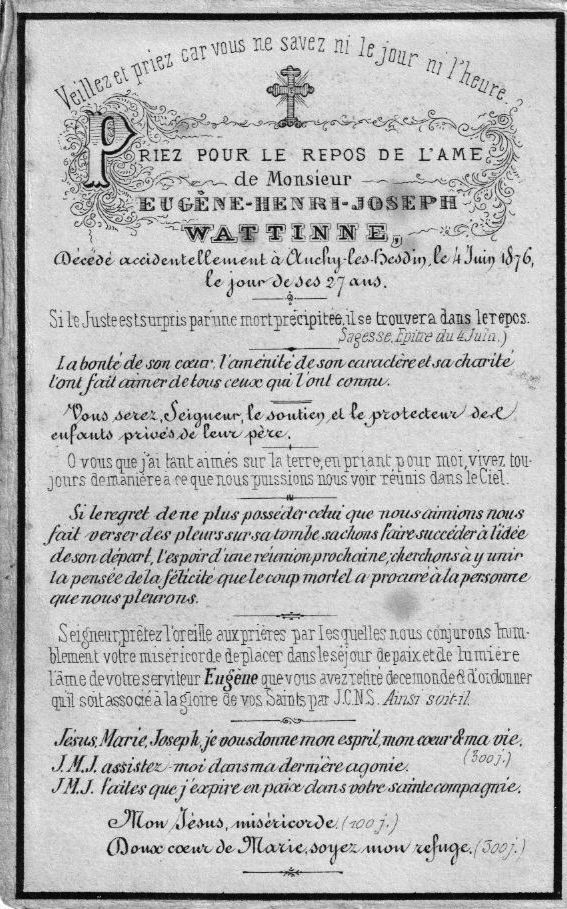 Veillez et priez car vous ne savez ni le jour ni l'heure.
PRIEZ POUR LE REPOS DE L'AME
de Monsieur
EUGÈNE-HENRI-JOSEPH
WATTINNE,
Décédé accidentellement à Auchy-les-Hesdin, le 4 Juin 1876,
le jour de ses 27 ans.
Si le Juste est surpris par une mort précipitée, il se trouvera dans le repos.
Sagesse, Epitre du 4 Juin.)
La bonté de son cœur, l'aménité de son caractère et sa charité
l'ont fait aimer de tous ceux qui l'ont connu.
Vous serez, Seigneur, le soutien et le protecteur des
enfants privés de leur père.
O vous que j'ai tant aimés sur la terre, en priant pour moi, vivez tou-
jours de manière a ce que nous puissions nous voir réunis dans le Ciel.
Si le regret de ne plus posséder celui que nous aimions nous
fait verser des pleurs sur sa tombe sachons faire succéder à l'idée
de son départ, l'espoir d'une réunion prochaine, cherchons à y unir
la pensée de la félicité que le coup mortel a procuré à la personne
que nous pleurons.
Seigneur, prêtez l'oreille aux prières par lesquelles nous conjurons hum-
blement votre miséricorde de placer dans le séjour de paix et de lumière
l'âme de votre serviteur Eugène que vous avez retiré de ce monde & d'ordonner
qu'il soit associé à la gloire de vos Saints par J.C.N.S. Ainsi soit-il.
Jésus, Marie, Joseph, je vous donne mon esprit, mon cœur & ma vie.
(300 j.)
J.M.J. assistez-moi dans ma dernière agonie.
J.M.J. faites que j'expire en paix dans votre sainte compagnie.
Mon Jésus, miséricorde. (100 j.)
Doux cœur de Marie, soyez mon refuge. (300 j.)